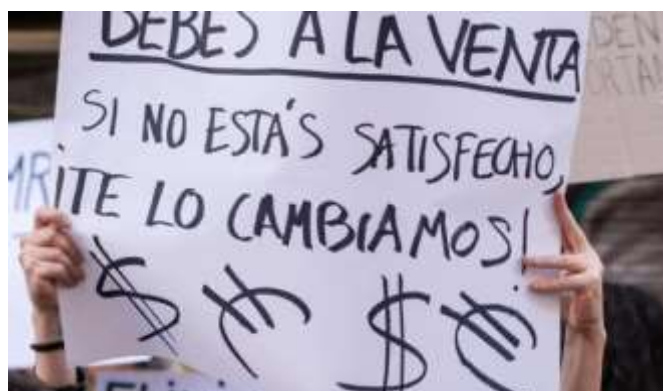 BEBES A LA VENTA
SI NO ESTÁS SATISFECHO,
¡TE LO CAMBIAMOS!
$ € $ €